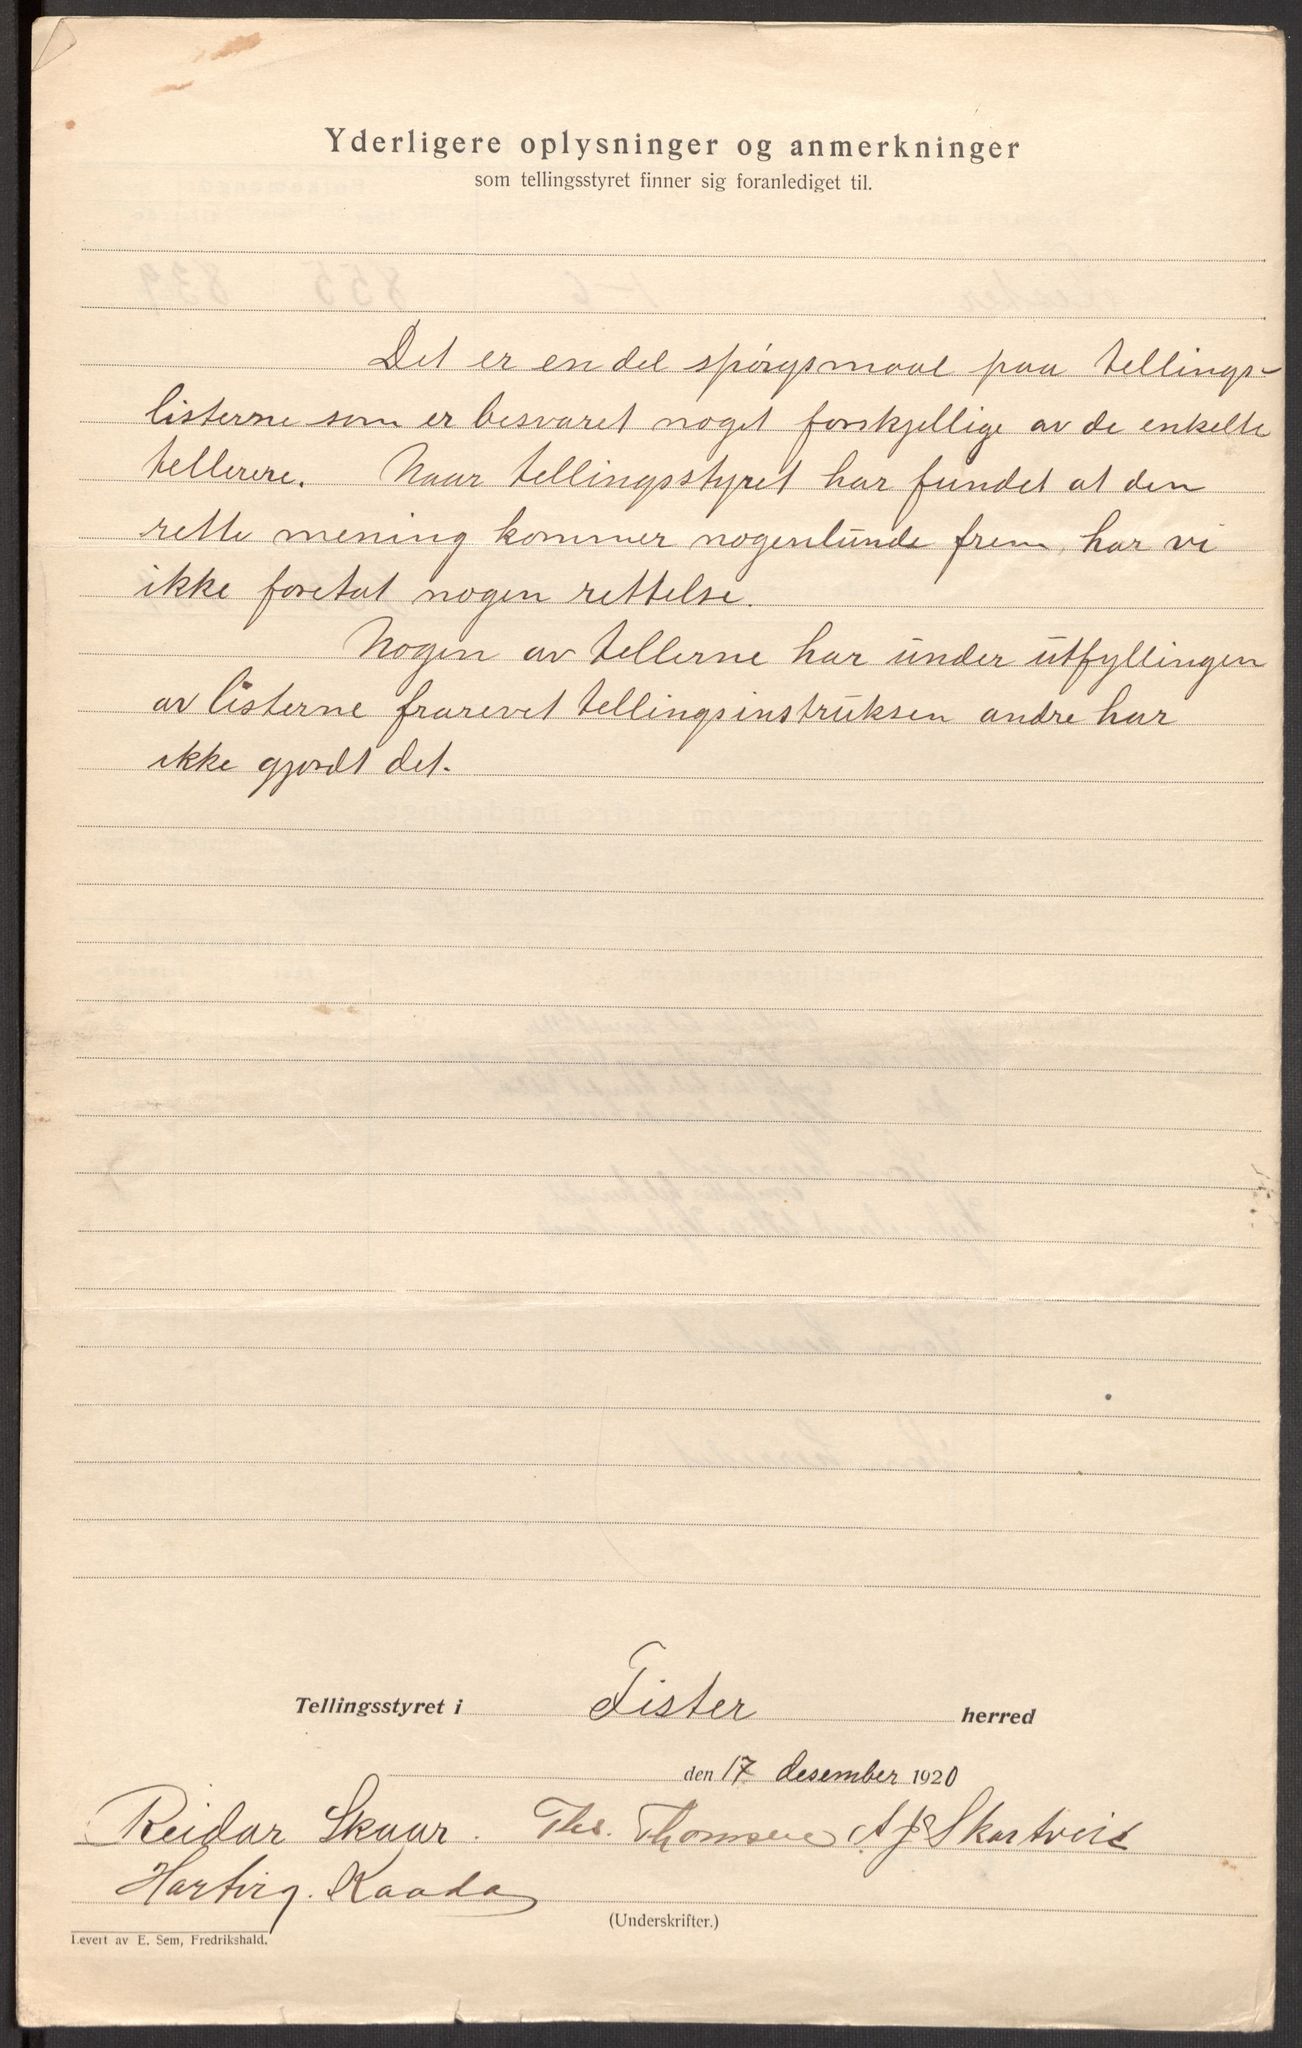 Yderligere oplysninger og anmerkninger
som tellingsstyret finner sig foranlediget til.
Det er en del spørgsmaal paa tellings-
listerne som er besvaret noget forskjellige av de enkelte
tellerere. Naar tellingsstyret har fundet at den
rette mening kommer nogenlunde frem, har vi
ikke foretat nogen rettelse.
Nogen av tellerne har under utfyllingen
av listerne frarevet tellingsinstruksen andre har
ikke gjordt det.
Tellingsstyret i Fister herred
den 17 desember 1920
Reidar Skaar. Ths. Thomsen A J Skartveit
Hartvig. Kaada
(Underskrifter.)
Levert av E. Sem, Fredrikshald.